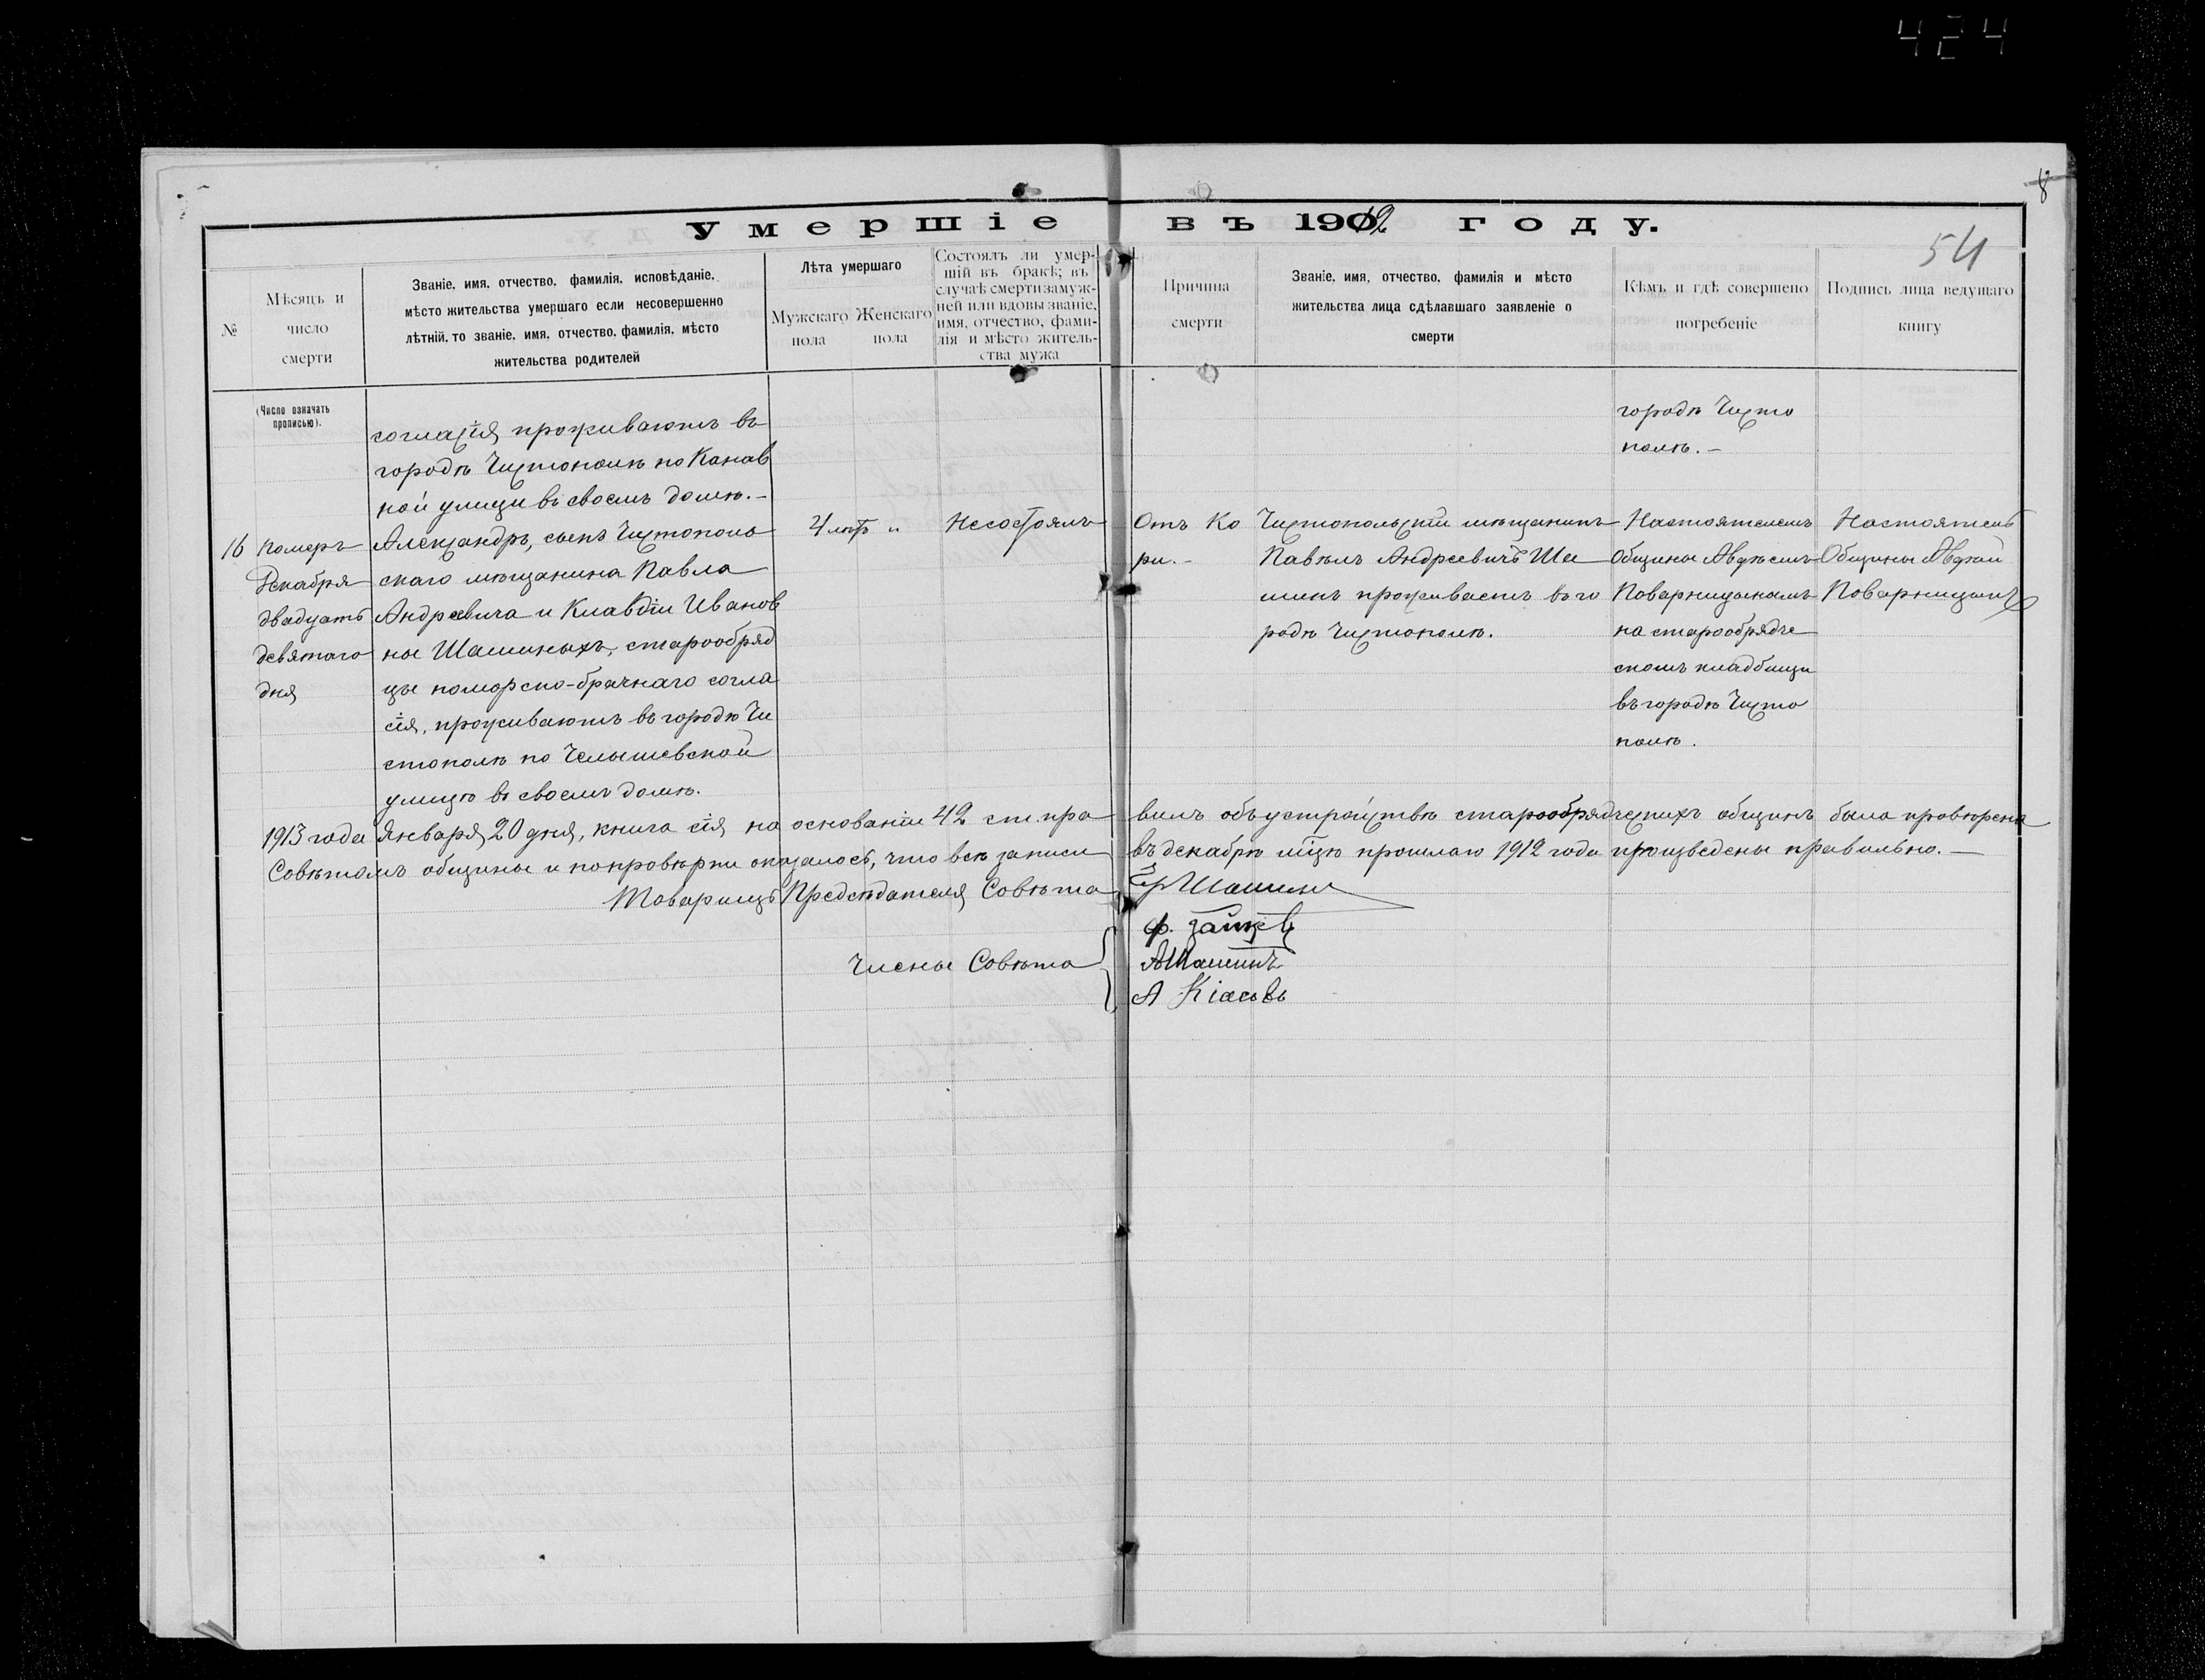 424
8
умершіе въ 1912 году.
54
№
Мѣсяцъ и
число
смерти
Званіе, имя, отчество, фамилія, исповѣданіе,
мѣсто жительства умершаго если несовершенно
лѣтній, то званіе, имя, отчество, фамилія, мѣсто
жительства родителей
Лѣта умершаго
Мужскаго пола
Женскаго пола
Состоялъ ли умер-
шій въ бракѣ; въ
случаѣ смерти замуж-
ней или вдовы званіе,
имя, отчество, фами-
лія и мѣсто житель-
ства мужа
Причина
смерти
Званіе, имя, отчество, фамилія и мѣсто
жительства лица сдѣлавшаго заявленіе о
смерти
Кѣмъ и гдѣ совершено
погребеніе
Подпись лица ведущаго
книгу
(Число означать
прописью).
согласія, проживаютъ въ
городѣ Чистополѣ по Канав
ной улицы въ своемъ домѣ.-
городѣ Чисто
полѣ.-
16
Померъ
Декабря
двадцать
девятаго
дня
Александръ, сынъ Чистополь
скаго мѣщанина Павла
Андреевича и Клавдіи Иванов
ны Шашиныхъ, старообряд
цы поморско-брачнаго согла
сія, проживаютъ въ городѣ Чи
стополѣ по Челышевской
улицѣ въ своемъ домѣ.
4 лѣтъ "
Несостоялъ
Отъ Ко
ри.-
Чистопольскій мѣщанинъ
Павелъ Андреевичъ Ша
шинъ проживаетъ въ го
родѣ Чистополѣ.
Настоятелемъ
Общины Авдѣемъ
Поварницынымъ
на старообрядче
скомъ кладбищи
въ городѣ Чисто
полѣ.
Настоятель
Общины Авдѣй
Поварницынъ
1913 года Января 20 дня, книга сія на основаніи 42 ст. пра вилъ объ устройствѣ старообрядческихъ общинъ была провѣрена
Совѣтомъ общины и попровѣрки оказалось, что всѣ записи въ декабрѣ м̃цѣ прошлаго 1912 года произведены правильно.-
Товарищъ Предсѣдателя Совѣта Гр Шашинъ
Ф. Зайцевъ
Члены Совѣта АШашинъ
А Кіасовъ